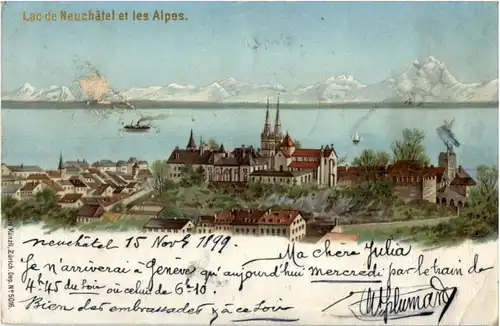 Lac de Neuchâtel et les Alpes.
Künzli, Zürich. Dep. No 5016.
Neuchâtel 15 Nov 1899.
Ma chere Julia
Je n'arriverai à Genève qu'aujourd'hui mercredi par le train de
4h45 du soir où celui de 6.10.
Bien des embrassades à ce soir